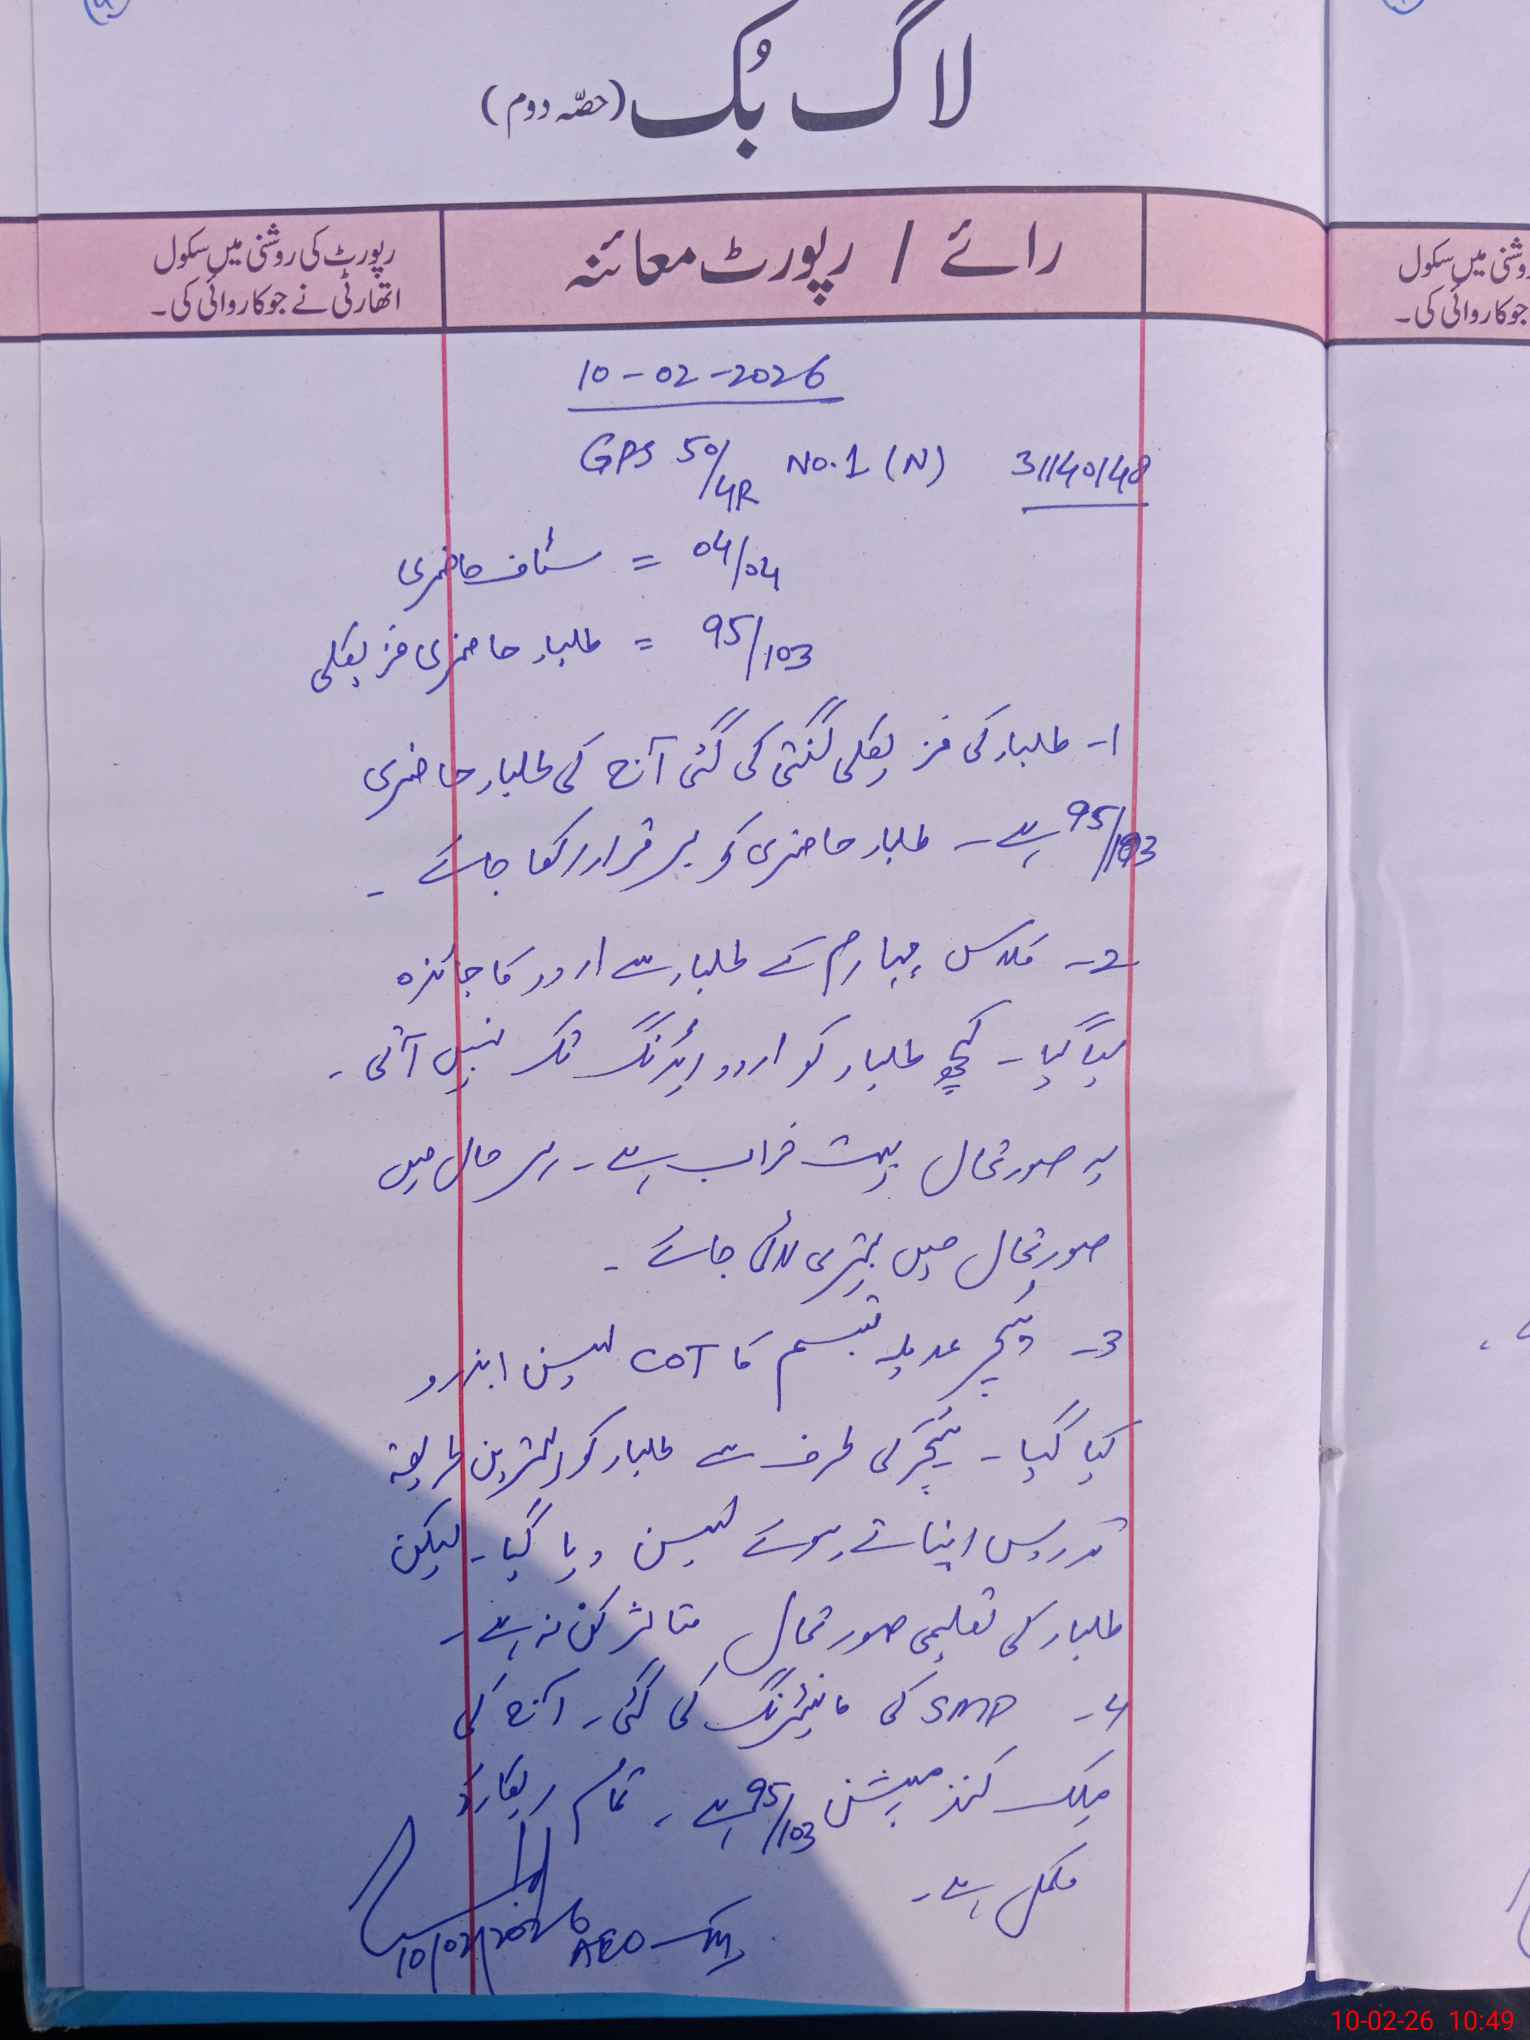 لاگ بُک (حصّہ دوم)
رائے / رپورٹ معائنہ
رپورٹ کی روشنی میں سکول
اتھارٹی نے جو کاروائی کی۔
روشنی میں سکول
جو کاروائی کی۔
10-02-2026
GPS 50/4R No.1 (N) 31140148
سٹاف حاضری = 04/04
طلباء حاضری فزیکلی = 95/103
1- طلباء کی فزیکلی گنتی کی گئی آج کی طلباء حاضری
95/103 ہے۔ طلباء حاضری کو برقرار رکھا جائے۔
2- کلاس چہارم کے طلباء سے اردو کا جائزہ
لیا گیا۔ کچھ طلباء کو اردو ریڈنگ تک نہیں آتی۔
یہ صورتحال بہت خراب ہے۔ ہر حال میں
صورتحال میں بہتری لائی جائے۔
3- ٹیچر عدیلہ تبسم کا COT لیسن ابزرو
کیا گیا۔ ٹیچر کی طرف سے طلباء کو بہترین طریقہ
تدریس اپناتے ہوئے لیسن دیا گیا۔ لیکن
طلباء کی تعلیمی صورتحال متاثر کن نہ ہے۔
4- SMP کی مانیٹرنگ کی گئی۔ آج کی
ملک کنزمپشن 95/103 ہے۔ تمام ریکارڈ
مکمل ہے۔
10/02/2026
AEO
10-02-26 10:49